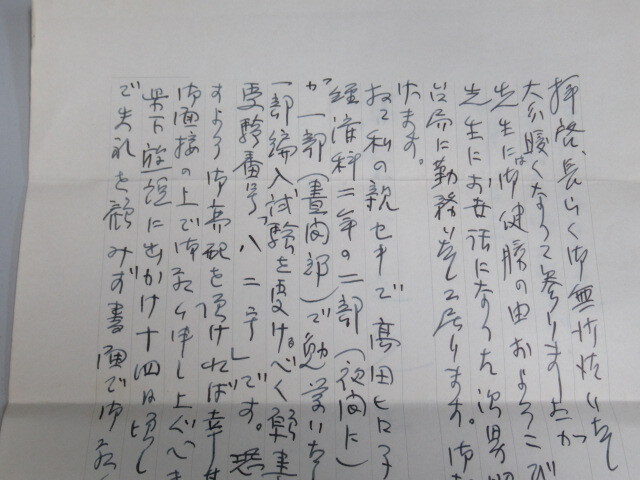 拝啓、長らく御無沙汰いたし
大分暖くなって参りましたが
先生には御健勝の由およろこび
先生にお世話になった次男
台局に勤務いたして居ります。御
います。
私の親セキで高田ヒロ子
経済科二年の二部(夜間に)
が一部(昼間部)で勉学いた
一部編入試験を受けるべく願書
受験番号「八二号」です。
すよう御高配を頂ければ幸
御面接の上で御願い申し上ぐべき
出かけ十四日
で失礼を顧みず書面で御願